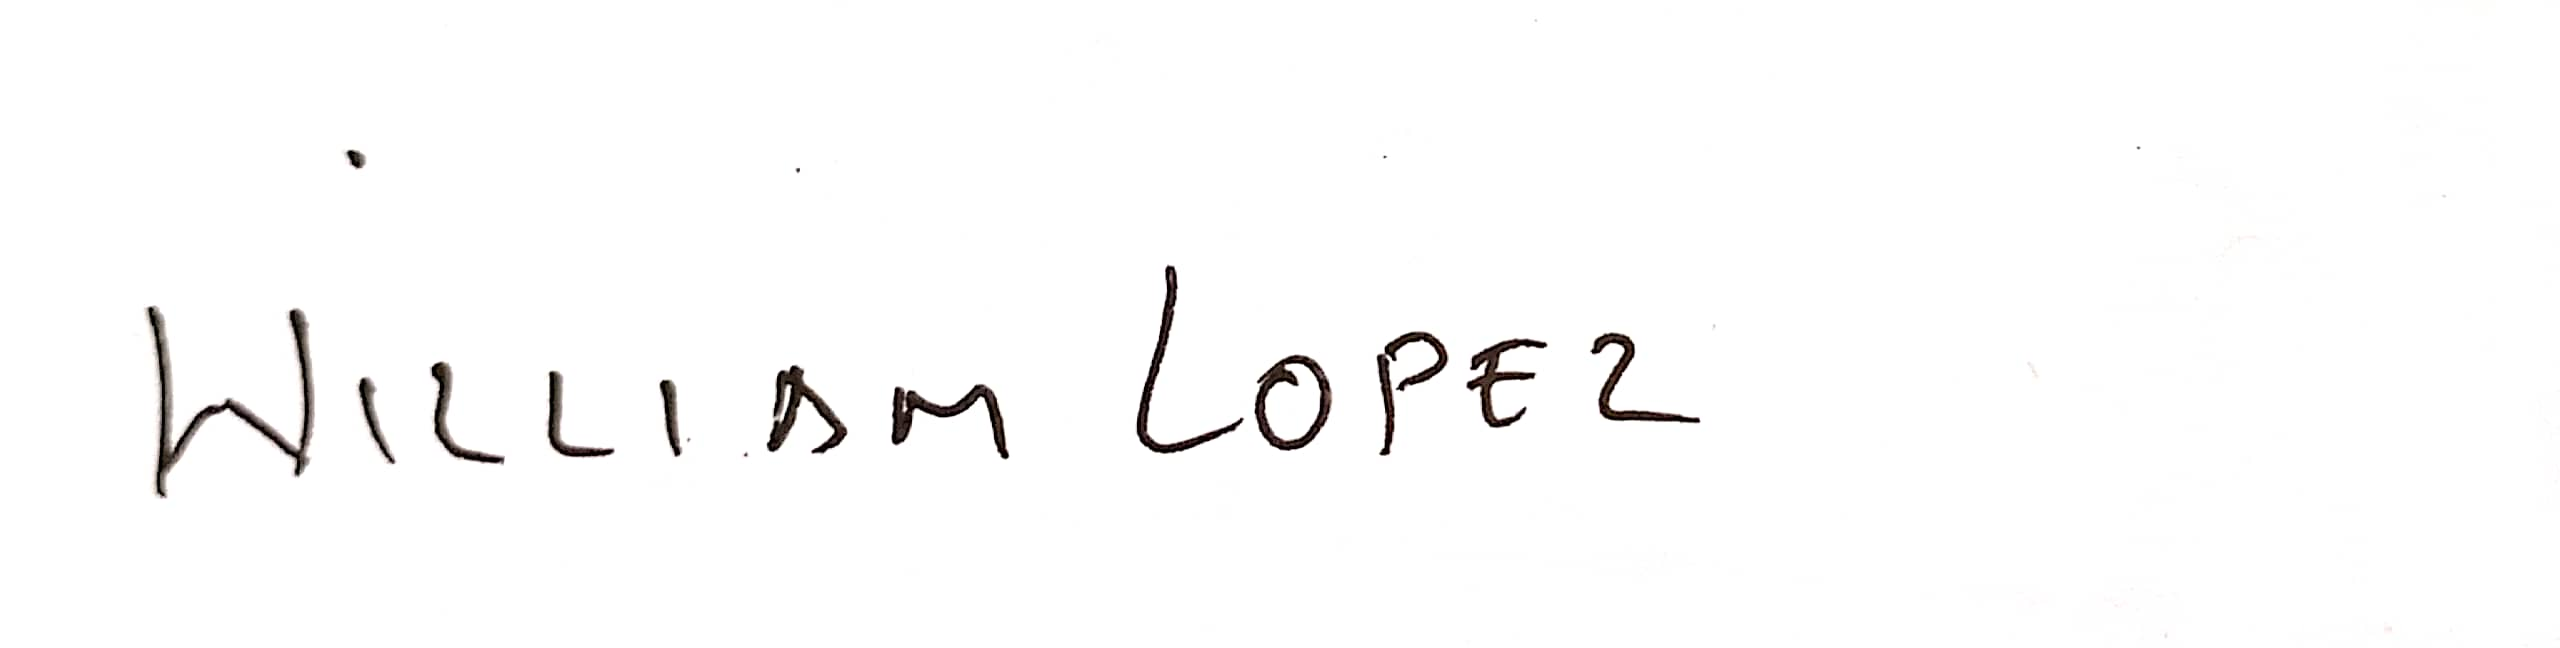 WILLIAM LOPEZ